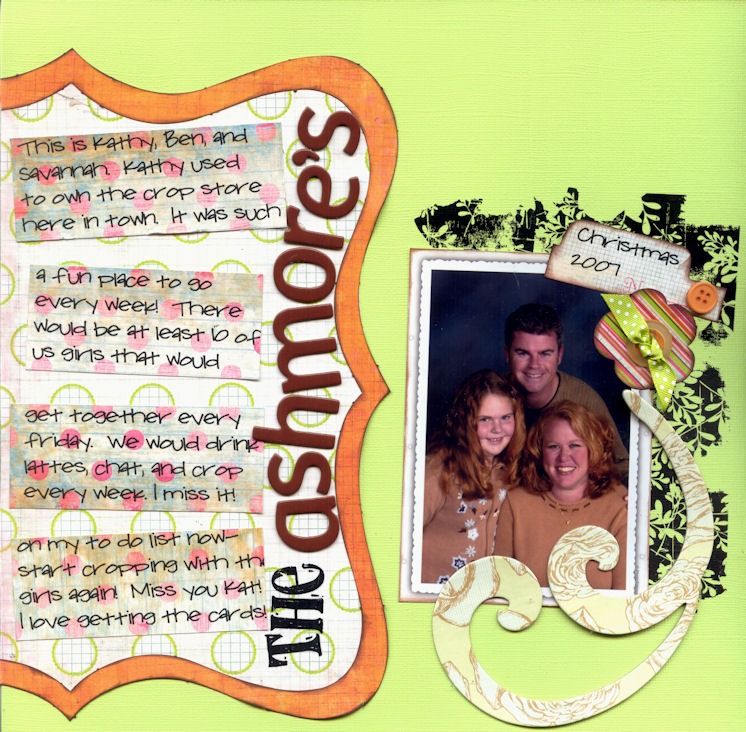 This is Kathy, Ben, and
Savannah. Kathy used
to own the crop store
here in town. It was such
a fun place to go
every week! There
would be at least 10 of
us girls that would
get together every
friday. We would drink
lattes, chat, and crop
every week. I miss it!
on my to do list now-
start cropping with the
girls again! Miss you Kat!
I love getting the cards!
THE ashmore's
Christmas
2007